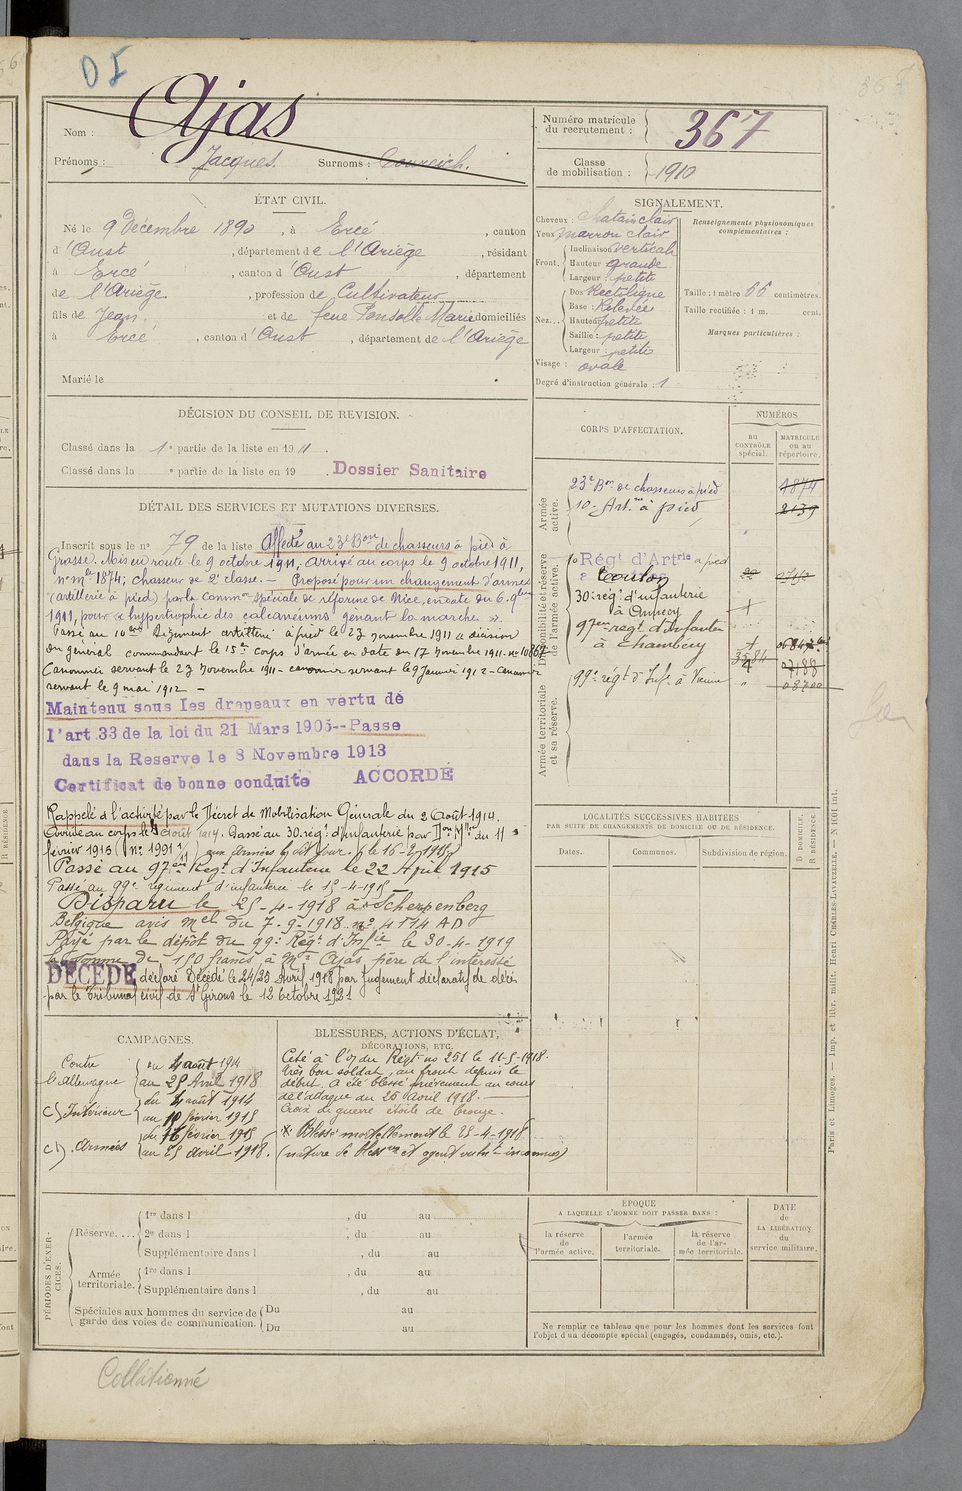 DI
Nom : Ajas
Prénoms : Jacques. Surnoms :
Numéro matricule du recrutement : 367
Classe de mobilisation : 1910
ÉTAT CIVIL.
Né le 9 Décembre 1890, à Ercé, canton
d'Oust, département de l'Ariège, résidant
à Ercé, canton d'Oust, département
de l'Ariège, profession de Cultivateur
fils de Jean et de feue Marie domiciliés
à Ercé, canton d'Oust, département de l'Ariège
Marié le
SIGNALEMENT.
Cheveux : Chatain clair
Yeux marron clair
Front. Inclinaison verticale
Hauteur grande
Largeur petite
Nez... Dos Rectiligne
Base : Relevée
Hauteur petite
Saillie : petite
Largeur : petite
Visage : ovale
Degré d'instruction générale : 1
Renseignements physionomiques complémentaires :
Taille : 1 mètre 66 centimètres.
Taille rectifiée : 1 m. cent.
Marques particulières :
DÉCISION DU CONSEIL DE REVISION.
Classé dans la 1e partie de la liste en 1911.
Classé dans la e partie de la liste en 19 . Dossier Sanitaire
DÉTAIL DES SERVICES ET MUTATIONS DIVERSES.
Inscrit sous le n° 79 de la liste Affecté au 23e Bon de chasseurs à pied à
Grasse. Mis en route le 9 octobre 1911, arrivé au corps le 9 octobre 1911,
n° mle 1874; chasseur de 2e classe. — Proposé pour un changement d'armes
(artillerie à pied) par la Common spéciale de réforme de Nice, en date du 6.9bre
1911, pour « hypertrophie des calcanéums gênant la marche ».
Passé au 10eme Régiment artillerie à pied le 23 novembre 1911 décision
du général commandant le 15e corps d'armée en date du 17 novembre 1911. n° 10867
Canonnier servant le 23 novembre 1911 - canonnier servant le 9 Janvier 1912 - canonnier
servant le 9 mai 1912 -
Maintenu sous les drapeaux en vertu de
l'art 33 de la loi du 21 Mars 1905--Passe
dans la Reserve le 8 Novembre 1913
Certificat de bonne conduite ACCORDÉ
Rappelé à l'activité par le Décret de Mobilisation Générale du 2 Août 1914.
Arrivé au corps le 4 août 1914. Passé au 30e rég. d'infanterie par Don Mlle du 11
février 1915 (n° 1991 ) aux armées
Passé au 97eme Régt d'Infanterie le 22 Avril 1915
Passé au 99e régiment d'infanterie le 15-4-1915
Disparu le 25-4-1918 à Scherpenberg
Belgique avis mel du 7-9-1918 n° 4174 AD
Payé par le dépôt du 99e Régt d'Infie le 30-4-1919
la somme de 150 francs à Mr Ajas, père de l'intéressé
DÉCÉDÉ déclaré Décédé le 24/25 Avril 1918 par Jugement déclaratif de décès
par le Tribunal civil de St Girons le 12 Octobre 1921
CORPS D'AFFECTATION.
NUMÉROS
AU CONTRÔLE spécial.
MATRICULE ou au répertoire.
Armée active.
23e Bon de chasseurs à pied 1874
10e Art.rie à pied 2139
Disponibilité et réserve de l'armée active.
Régt d'Artrie à pied
Toulon
30e rég. d'infanterie
à Annecy
97eme régt d'Infanterie
à Chambéry
Armée territoriale et sa réserve.
99e régt d'Infie à Vienne
07188
08700
LOCALITÉS SUCCESSIVES HABITÉES
PAR SUITE DE CHANGEMENTS DE DOMICILE OU DE RÉSIDENCE.
Dates.
Communes.
Subdivision de région.
D DOMICILE.
R RÉSIDENCE
CAMPAGNES.
Contre l'Allemagne
du 4 août 1914
au 25 Avril 1918
C) Intérieur
du 4 août 1914
au 10 février 1915
C) Armées
du 16 février 1915
au 25 avril 1918.
BLESSURES, ACTIONS D'ÉCLAT,
DÉCORATIONS, ETC.
Cité à l'O du Régt no 251 le 11-5-1918.
très bon soldat, au front depuis le
début, a été blessé grièvement au cours
de l'attaque du 25 avril 1918.
Croix de guerre étoile de bronze.
Blessé mortellement le 25-4-1918
(nature de blessure et agent vulnt inconnus)
PÉRIODES D'EXERCICES.
Réserve....
1re dans l , du au
2e dans l , du au
Supplémentaire dans l , du au
Armée territoriale.
1re dans l , du au
Supplémentaire dans l , du au
Spéciales aux hommes du service de garde des voies de communication.
Du au
Du au
ÉPOQUE
A LAQUELLE L'HOMME DOIT PASSER DANS :
la réserve de l'armée active.
l'armée territoriale.
la réserve de l'armée territoriale.
DATE de LA LIBÉRATION du service militaire.
Ne remplir ce tableau que pour les hommes dont les services font
l'objet d'un décompte spécial (engagés, condamnés, omis, etc.).
Paris et Limoges. — Imp. et libr. milit. Henri CHARLES-LAVAUZELLE.
Collationné